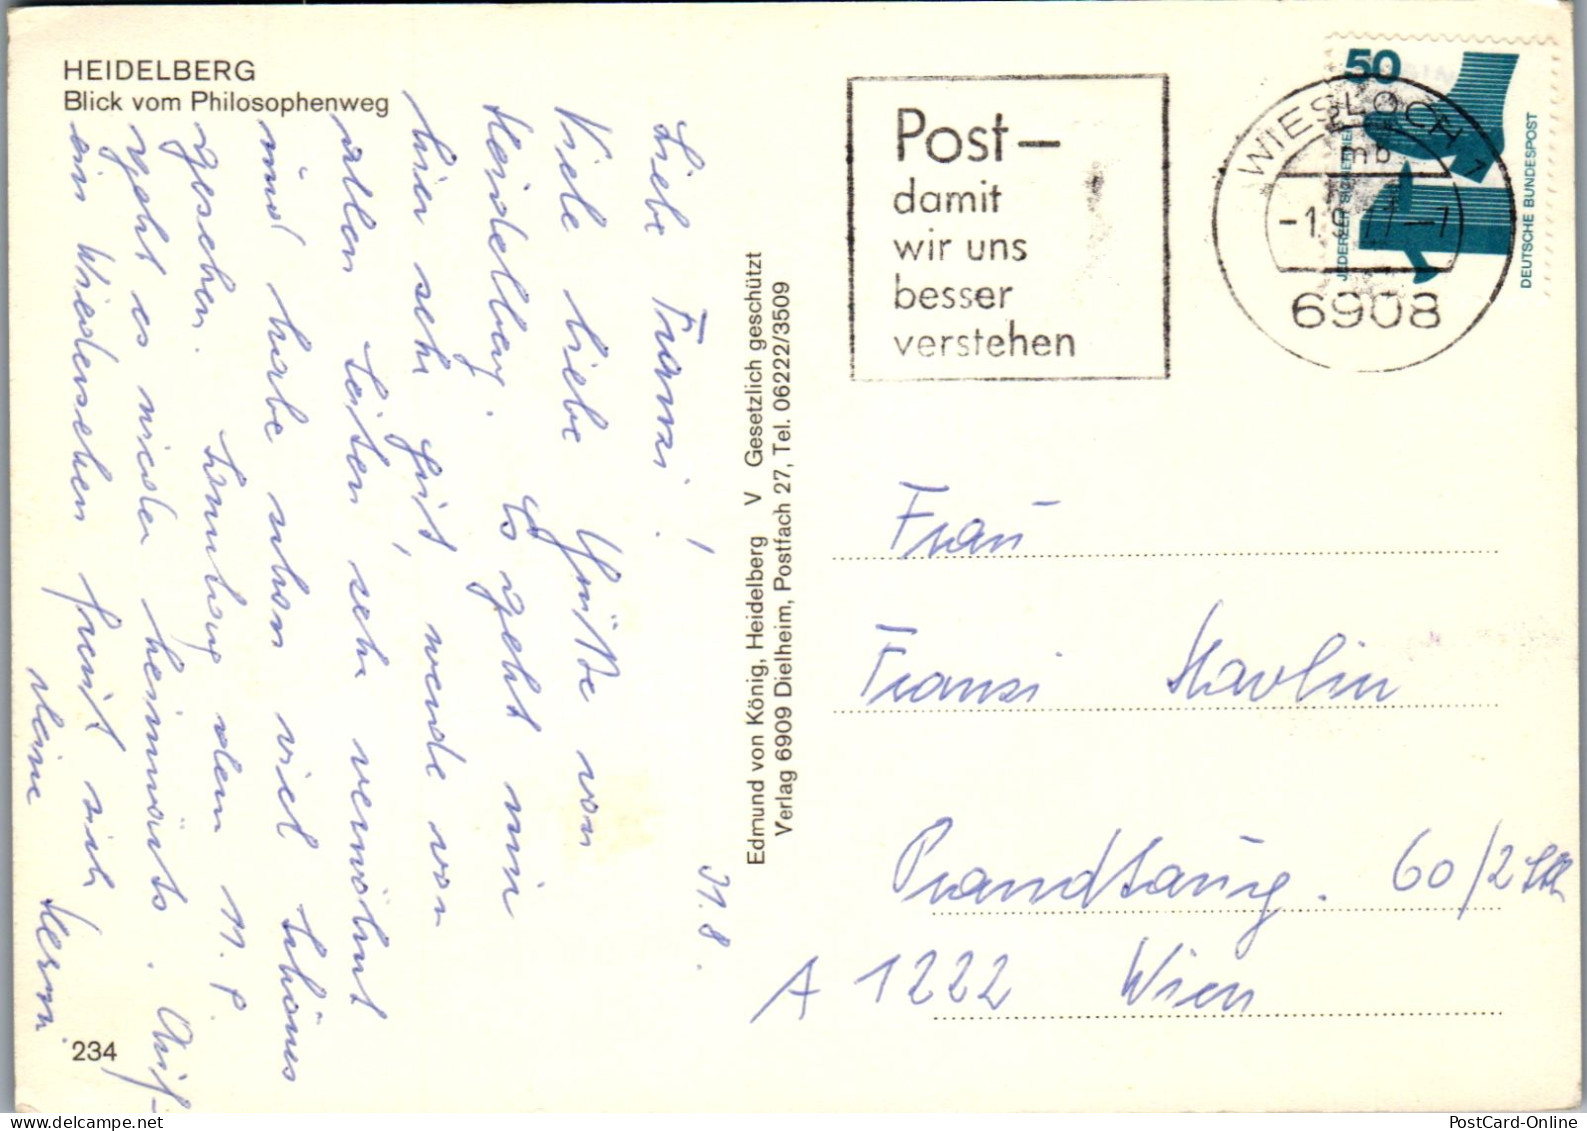 HEIDELBERG
Blick vom Philosophenweg
31.8.
Liebe Franzi!
Viele liebe Grüße von
Heidelberg. Es geht mir
hier sehr gut, werde von
allen Seiten sehr verwöhnt
und habe schon viel Schönes
gesehen. Samstag den 11. P.
geht es wieder heimwärts. Auf-
ein Wiedersehen freut sich
Deine
234
Edmund von König, Heidelberg V Gesetzlich geschützt
Verlag 6909 Dielheim, Postfach 27, Tel. 06222/3509
Post—
damit
wir uns
besser
verstehen
WIESLOCH 1
mb
-1.9.77-7
6908
50
JEDERZEIT SICHERHEIT
DEUTSCHE BUNDESPOST
Frau
Franzi Havlin
60/2
A 1222 Wien
PostCard-Online